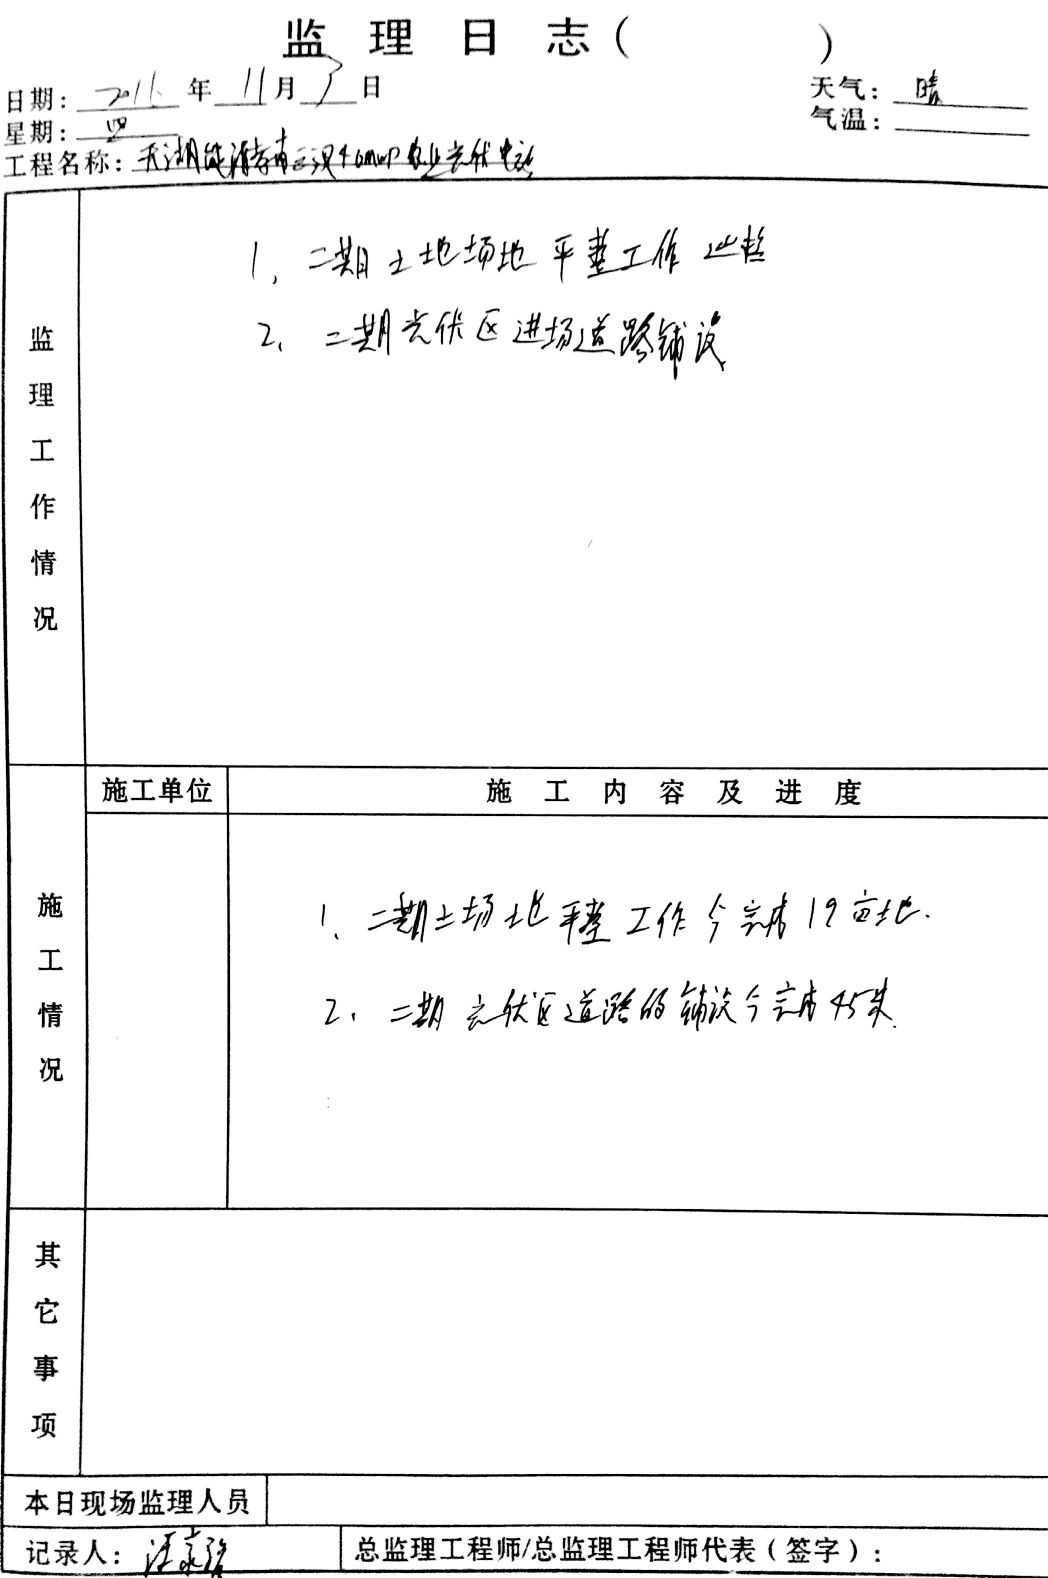 监理日志（ ）
日期：2016年11月3日 天气：晴
星期：四 气温：
工程名称：天湖能源孝南三汊40MWP农业光伏电站
监理工作情况
1、二期土地场地平整工作
2、二期光伏区进场道路铺设
施工单位 施工内容及进度
施工情况
1、二期土场地平整工作今完成19亩地.
2、二期光伏区道路的铺设今完成45米.
其它事项
本日现场监理人员
记录人：汪 总监理工程师/总监理工程师代表（签字）：